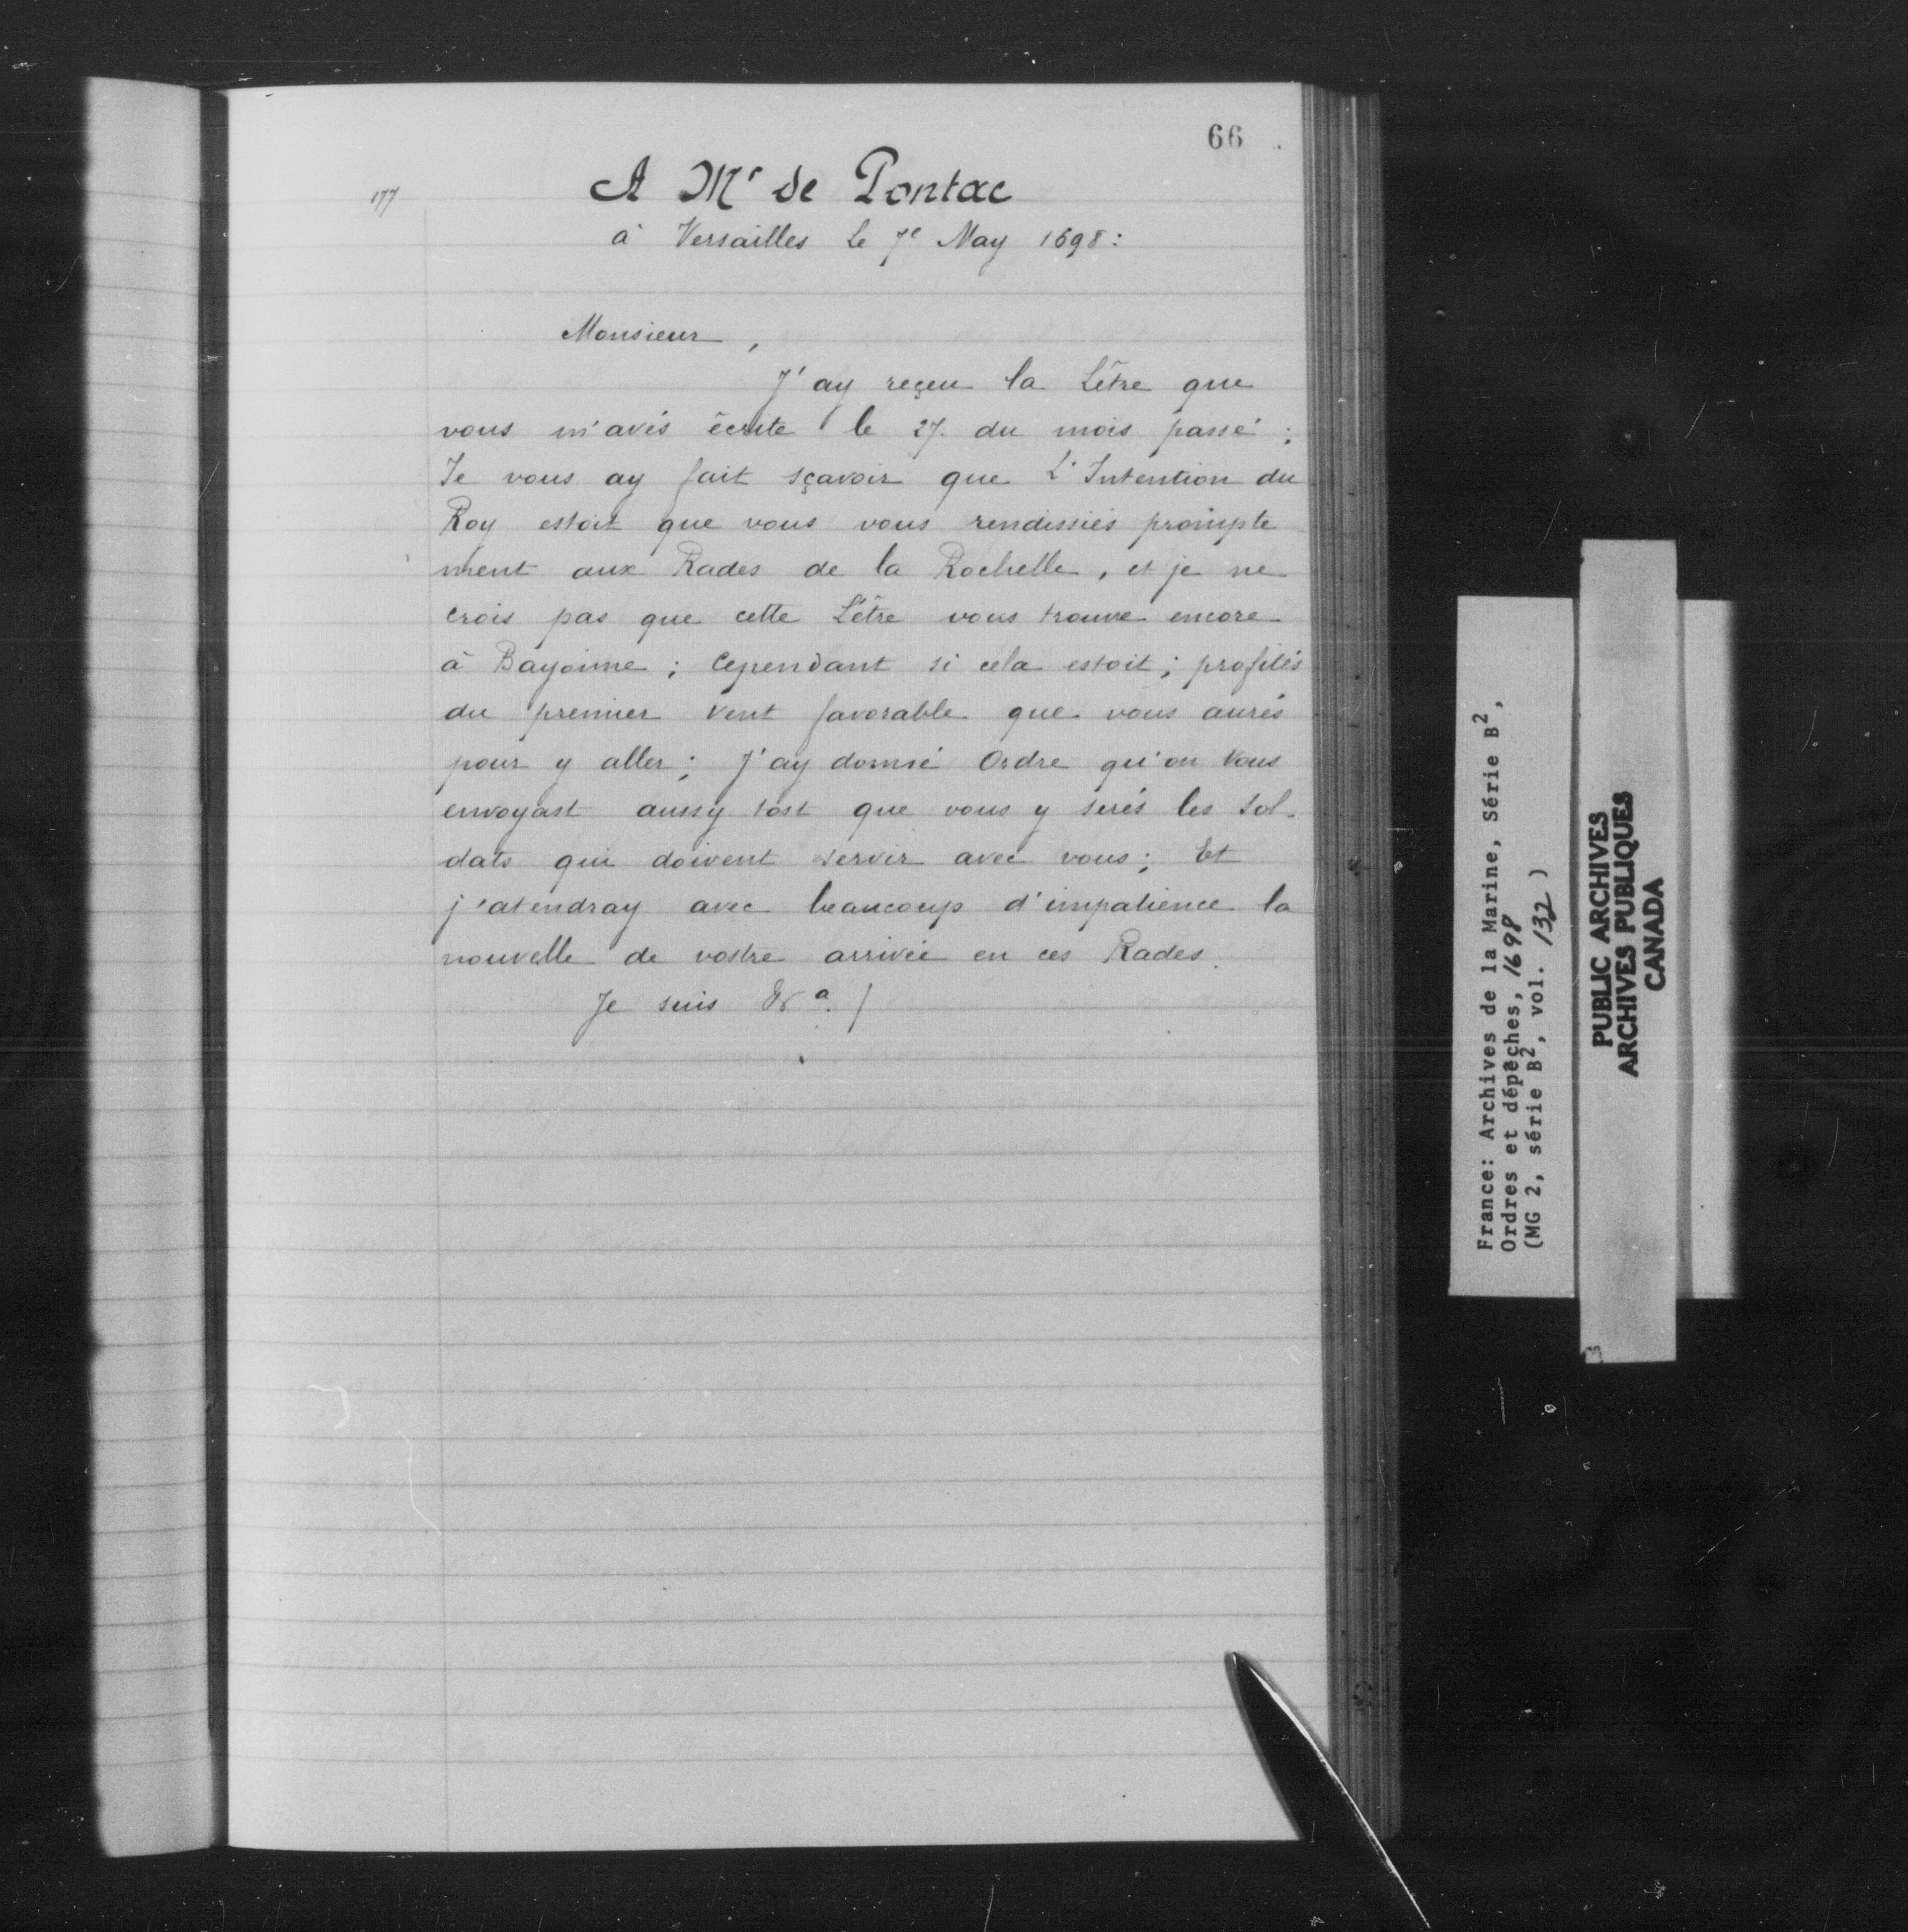 66
177
A Mr de Pontac
à Versailles le 7e May 1698:
Monsieur,
J'ay reçeu la Lêtre que
vous m'avés écrite le 27. du mois passé;
Je vous ay fait sçavoir que L'Intention du
Roy estoit que vous vous rendissiés prompte
ment aux Rades de la Rochelle, et je ne
crois pas que cette Lêtre vous trouve encore
à Bayonne; Cependant si cela estoit; profités
du premier vent favorable que vous aurés
pour y aller; J'ay donné Ordre qu'on Vous
envoyast aussy tost que vous y serés les Sol-
dats qui doivent servir avec vous; Et
j'atendray avec beaucoup d'impatience la
nouvelle de vostre arrivée en ces Rades.
Je suis &a. /
France: Archives de la Marine, Série B2,
Ordres et dépêches, 1698
(MG 2, série B2, vol. 132)
PUBLIC ARCHIVES
ARCHIVES PUBLIQUES
CANADA
3